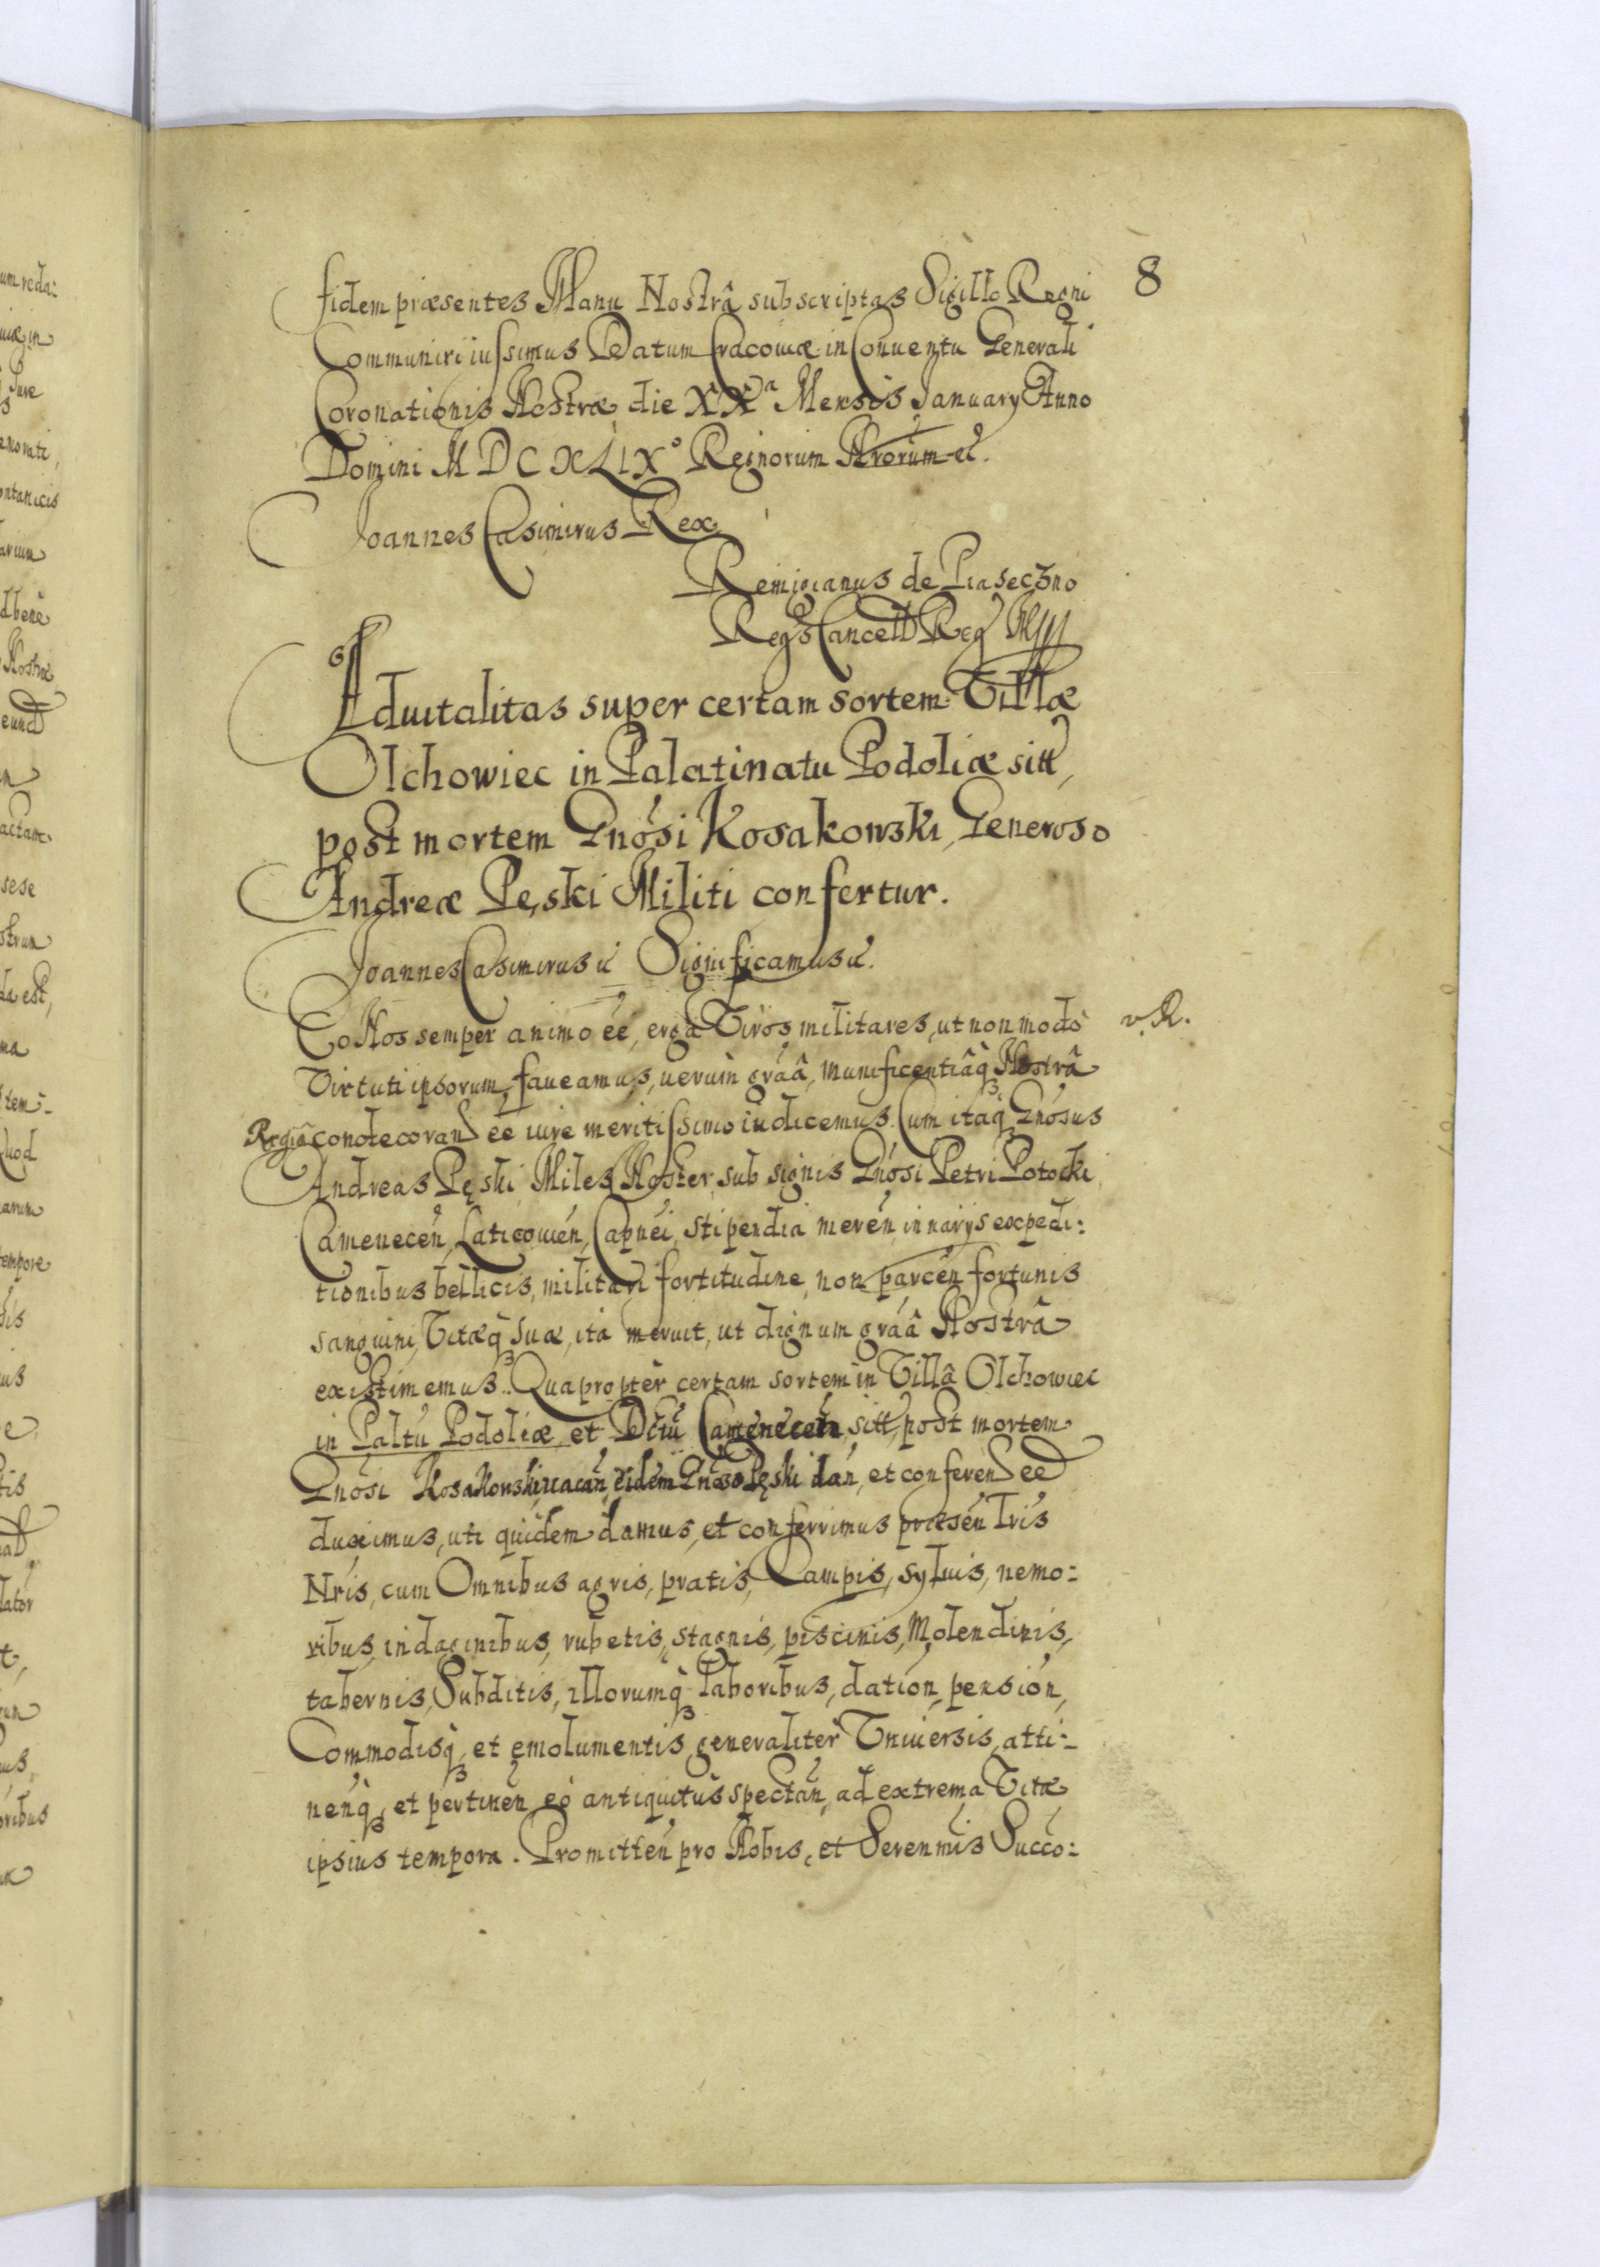 8
fidem præsentes Manu Nostrâ subscriptas Sigillo Regni
Communiri iussimus Datum Cracoviæ in Conuentu Generali
Coronationis Nostræ die XXª Mensis January Anno
Domini MDCXLIXº Regnorum Nrorum et.
Joannes Casimirus Rex
Remigianus de Piaseczno
Regs Cancell Reg
Aduitalitas super certam sortem Villæ
Olchowiec in Palatinatu Podoliæ sitt,
post mortem Gnosi Kosakowski, Generoso
Andreæ Pęski Militi confertur.
Joannes Casimirus et Significamus et.
Eo Nos semper animo ee, erga Viros militares, ut non modò v. R.
Virtuti ipsorum faueamus, uerùm gráâ, munificentiâq̀ Nostrâ
Regiâ condecorand ee iure meritissimo iudicemus. Cum itaq̀ Gnosus
Andreas Pęski Miles Noster, sub signis Gnosi Petri Potocki
Camenecen, Laticouien, Capnei, stipendia meren, in uarijs expedi:
tionibus bellicis, militari fortitudine, non parcen fortunis
sanguini, Vitæq̀ suæ, ita meruit, ut dignum gráâ Nostrâ
existimemus. Quapropter certam sortem in Villâ Olchowiec
in Paltu Podoliæ, et Dctu Camenecen, sitt, post mortem
Gnosi Kosakowski uacan, eidem Gnoso Pęski dan, et conferend ee
duximus, uti quidem damus, et conferrimus præsen Lris
Nris, cum Omnibus agris, pratis, Campis, syluis, nemo:
ribus, indaginibus, rubetis, stagnis, piscinis, Molendinis,
tabernis, Subditis, illorumq̀ laboribus, dation, pension,
Commodisq̀, et emolumentis generaliter Vniuersis, atti:
nenq̀, et pertinen, eò antiquitùs spectan, ad extrema Vitæ
ipsius tempora. Promitten pro Nobis, et Serennis Succo: